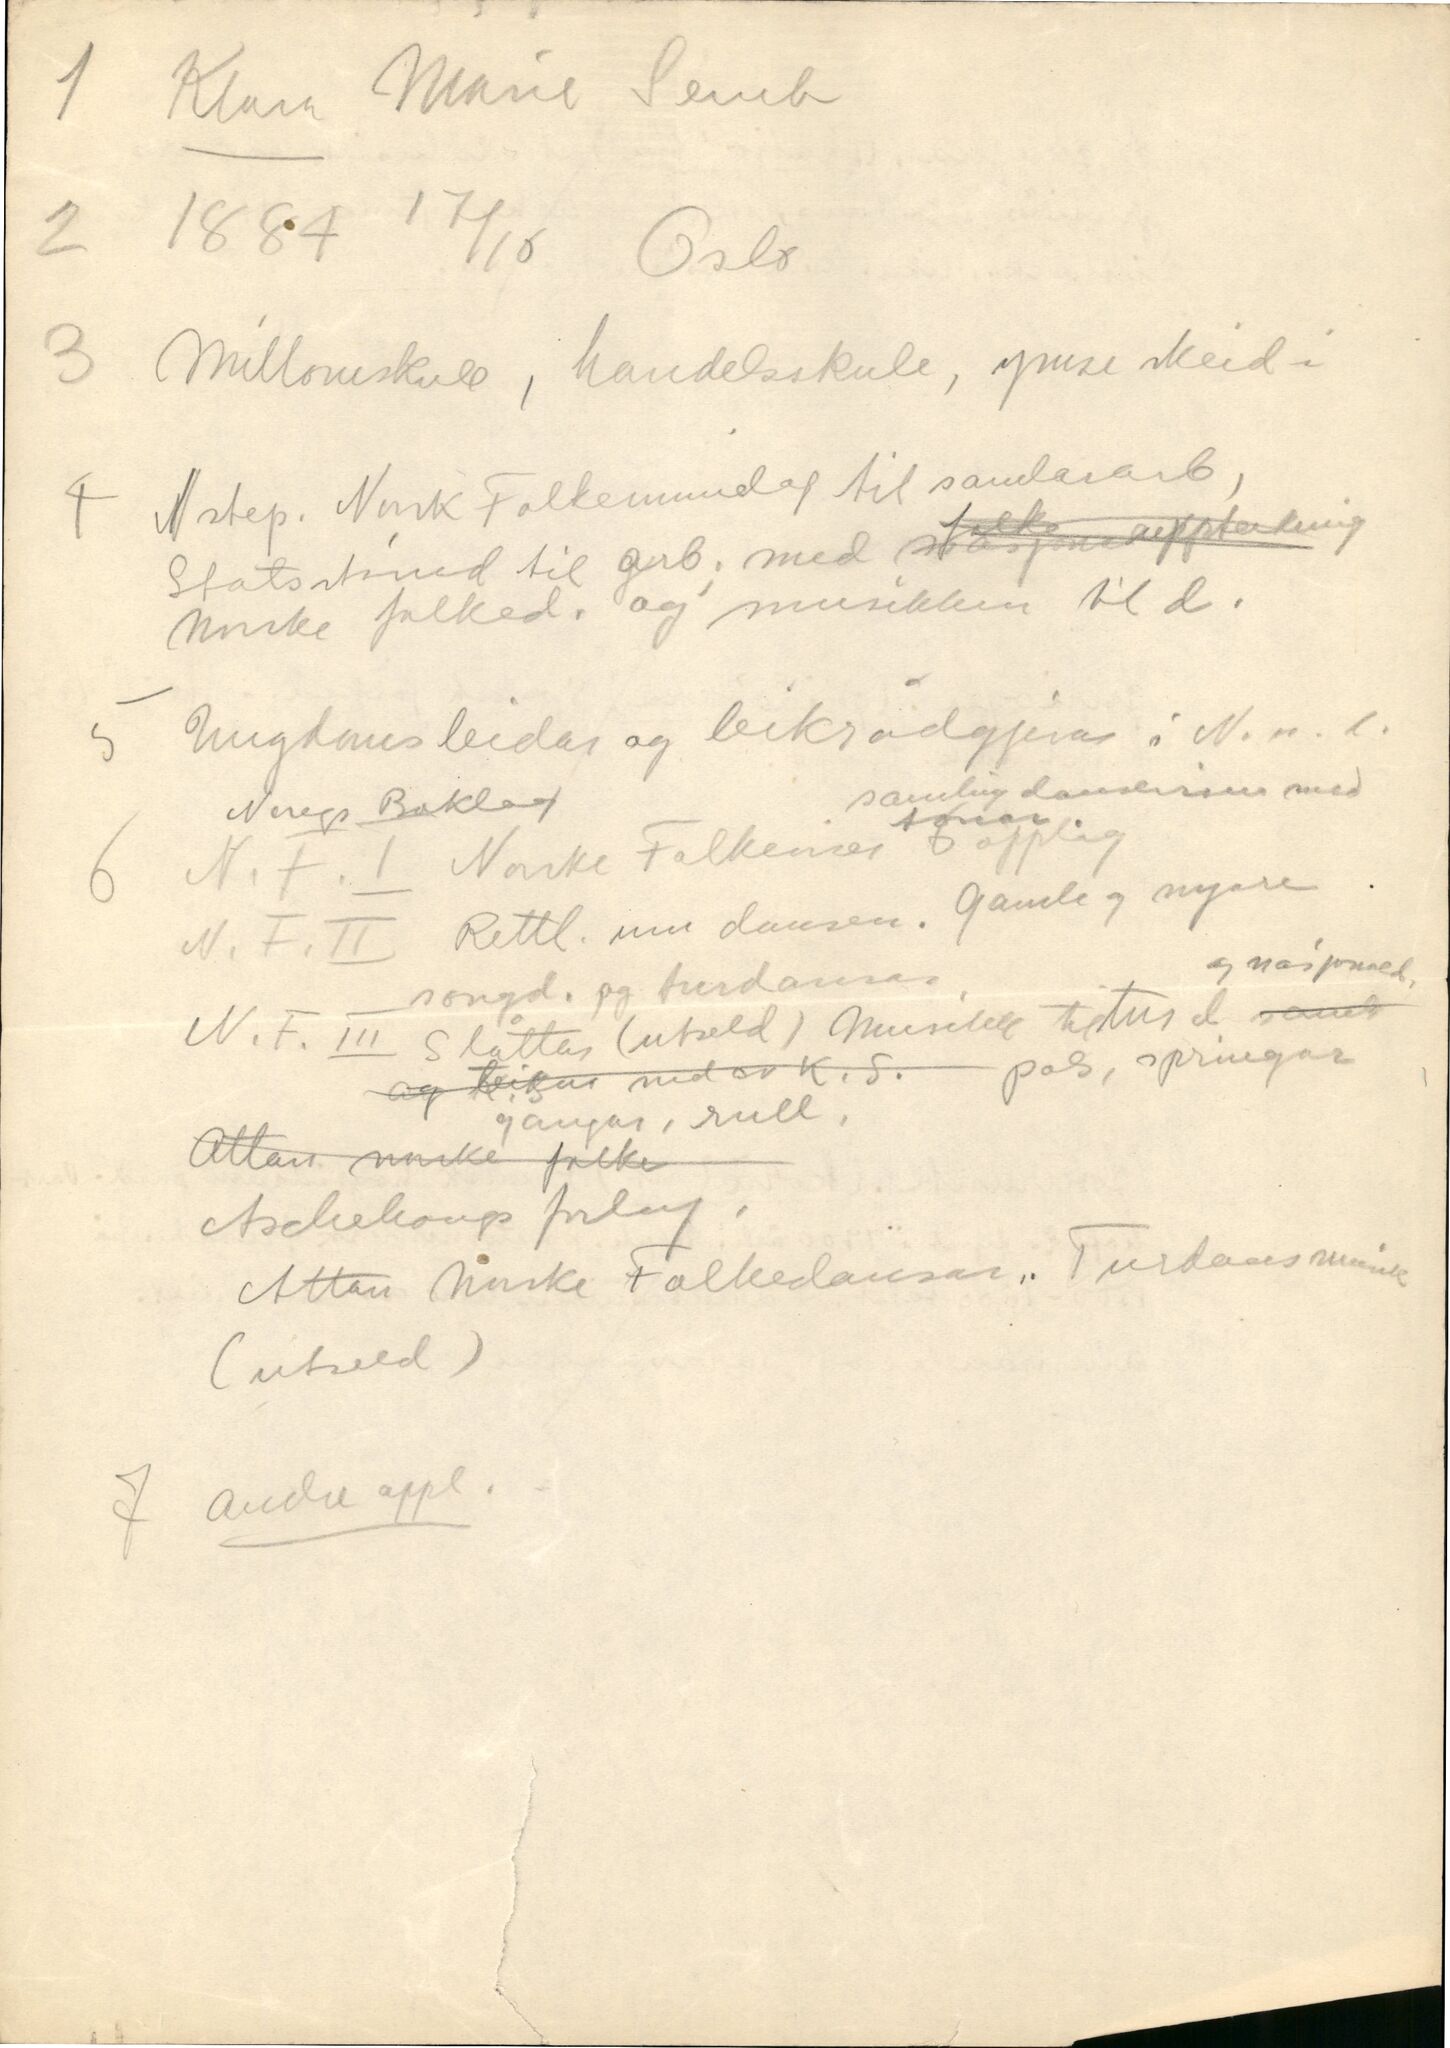 1 Klara Marie Semb
2 1884 17/10 Oslo
3 Millomskule, handelsskule, ymse skeid
4 stip. Norsk Folkeminnelag til samlararb,
folke
Statsstønad til arb. med
norske folked. og musikken til d.
5 Ungdomsleidar og leikrådgjevar i N. u. l.
Noregs Boklag samling danseviser med
tonar.
6 N. F. I Norske Folkeviser 6 opplag
N. F. II Rettl. um dansen. Gamle og nyare
songd. og turdansar.
og nasjonald.
N. F. III Slåttar (utseld) Musikk til turd samt
og leikar ved K. S. pols, springar
gangar, rull.
Attan norske folke
Aschehougs forlag.
Attan Norske Folkedansar. Turdansmusikk
(utseld)
7 Andre oppl.